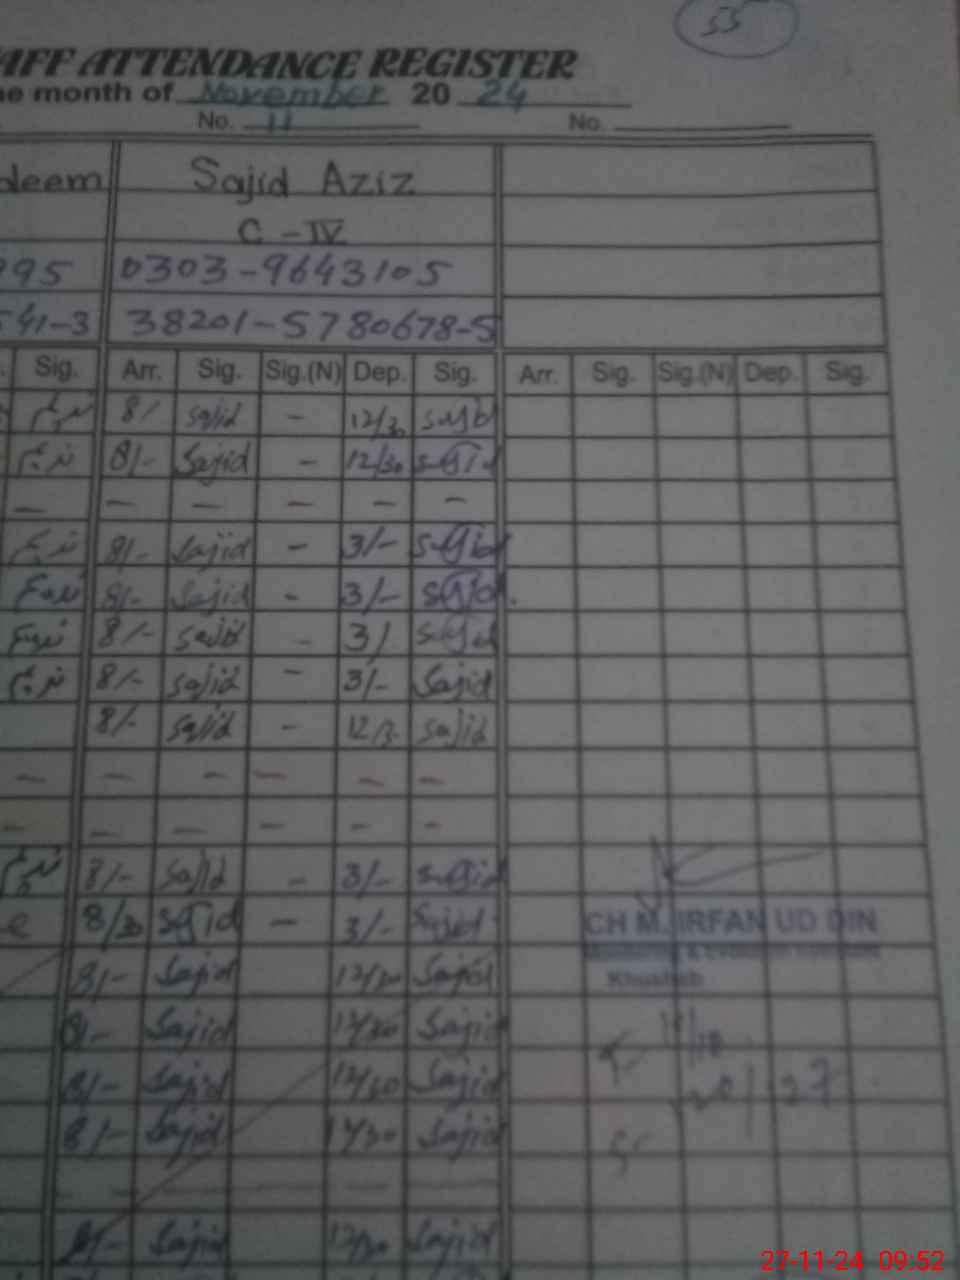 55
AFF ATTENDANCE REGISTER
he month of November 20 24
No. 11 No.
deem Sajid Aziz
C - IV
995 0303-9643105
541-3 38201-5780678-5
Sig. Arr. Sig. Sig.(N) Dep. Sig. Arr. Sig. Sig.(N) Dep. Sig.
ندیم 8/- sajid - 12/30 sajid
ندیم 8/- Sajid - 12/30 sajid
- - - - - -
ندیم 8/- Sajid - 3/- sajid
ندیم 8/- Sajid - 3/- sajid
ندیم 8/- sajid - 3/ sajid
ندیم 8/- sajid - 3/- Sajid
8/- sajid - 12/3 sajid
- - - - - -
- - - - - -
ندیم 8/- sajid - 3/- sajid
e 8/30 sajid - 3/- Sajid
CH M. IRFAN UD DIN
Khushab
8/- Sajid 12/30 Sajid
8/- Sajid 12/30 Sajid
8/- Sajid 12/30 Sajid
8/- Sajid 12/30 Sajid
- - - - -
8/- Sajid 12/30 Sajid
27-11-24 09:52